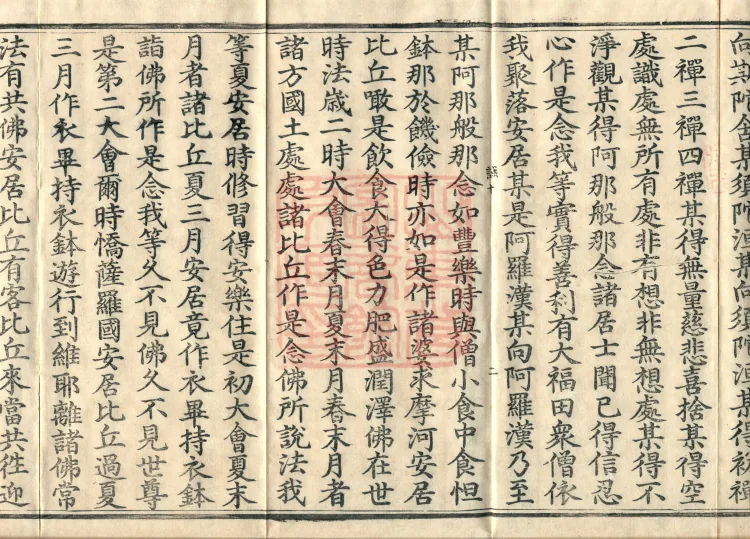 向斯陀含某須陀洹某向須陀洹某得初禪
二禪三禪四禪某得無量慈悲喜捨某得空
處識處無所有處非有想非無想處某得不
淨觀某得阿那般那念諸居士聞已得信忍
心作是念我等實得善利有大福田衆僧依
我聚落安居某是阿羅漢某向阿羅漢乃至
十 二
某阿那般那念如豐樂時與僧小食中食怛
鉢那於饑儉時亦如是作諸婆求摩河安居
比丘噉是飲食大得色力肥盛潤澤佛在世
時法歲二時大會春末月夏末月春末月者
諸方國土處處諸比丘作是念佛所說法我
等夏安居時修習得安樂住是初大會夏末
月者諸比丘夏三月安居竟作衣畢持衣鉢
詣佛所作是念我等久不見佛久不見世尊
是第二大會爾時憍薩羅國安居比丘過夏
三月作衣畢持衣鉢遊行到維耶離諸佛常
法有共佛安居比丘有客比丘來當共往迎